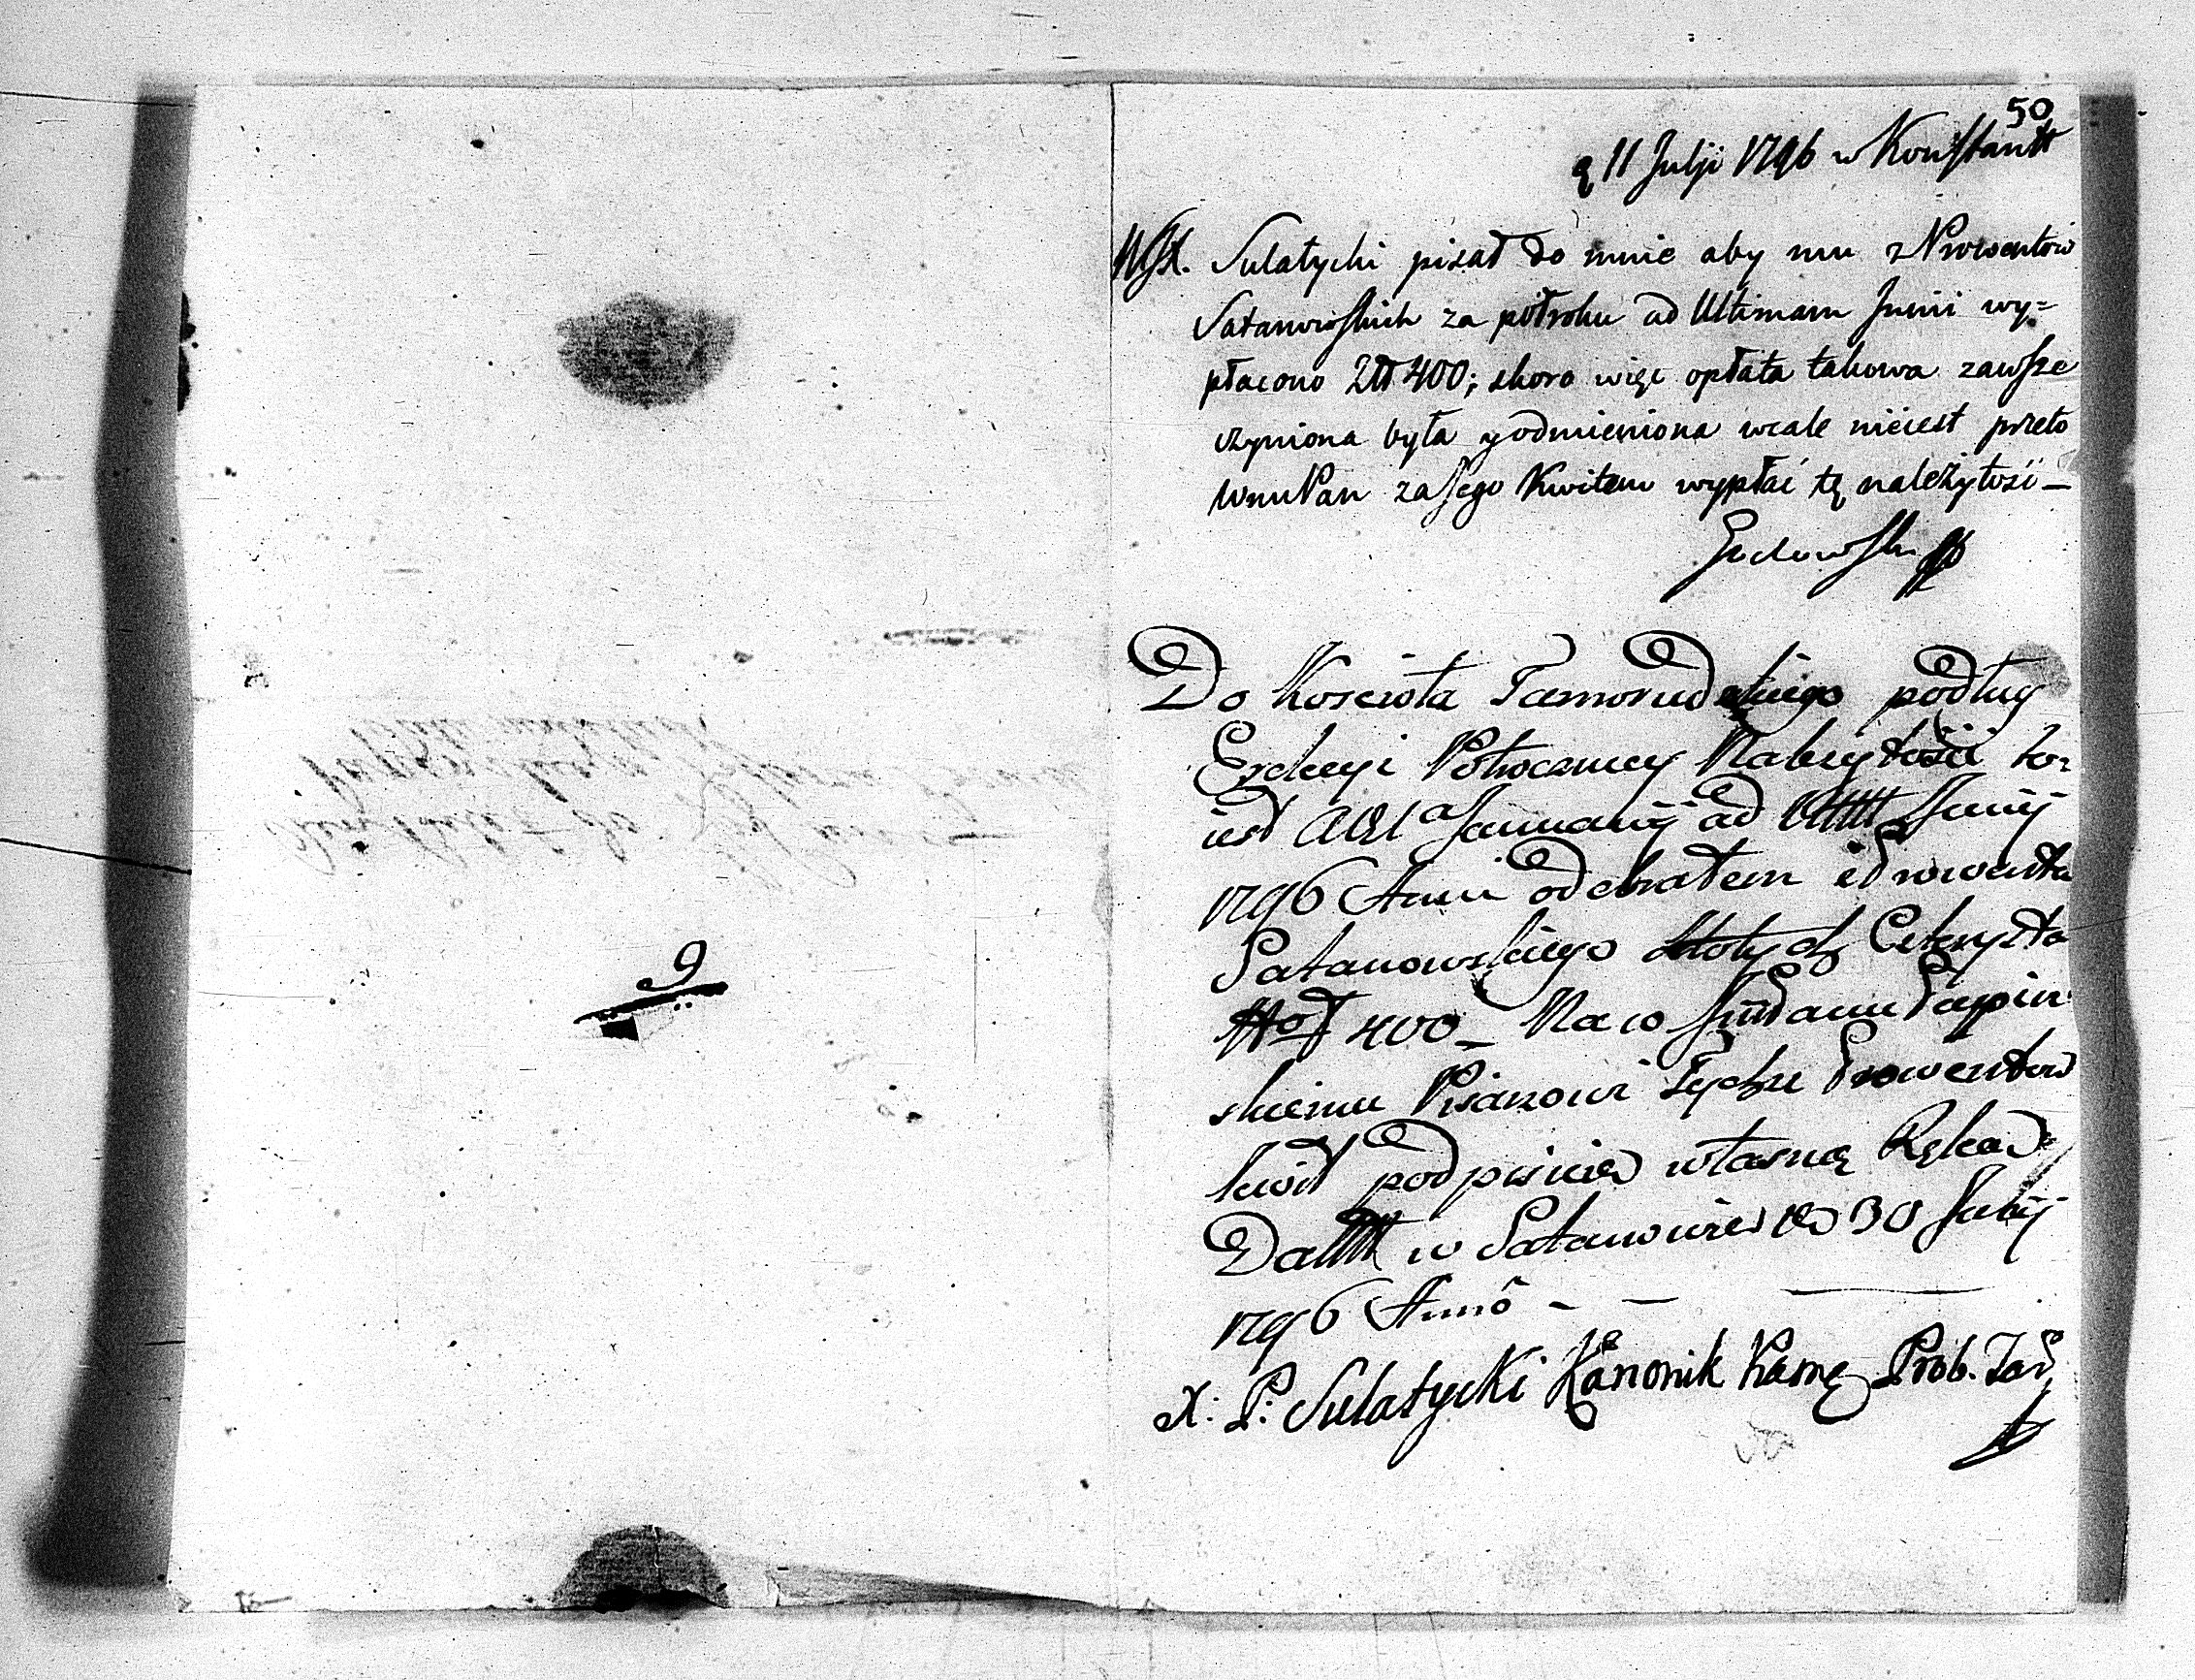 9
50
11 Julji 1796 w Konstantt
Sulatycki pisał do mnie aby mu z Prowentów
Satanowskich za półroku ad Ultimam Junii wy=
płacono Złł 400; skoro więc opłata takowa zawsze
czyniona była y odmieniona wcale nieiest przeto
WmuPan za Jego Kwitem wypłać tę należytość _
Do Koscioła Tarnorudzkiego podług
Erekcyi Połroczney Nalezytosci to
iest a 1ma Januarij ad Junij
1796 Anni odebrałem z Prowentu
Satanowskiego Złotych Czterysta
400 _ Na co
skiemu Pisarzowi Tychze Prowentow
kwit podpisuię własną Ręką
Dattt w Satanowie 30 Julij
1796 Annô - -
X: P: Sulatycki Kanonik Kame Prob. Tar